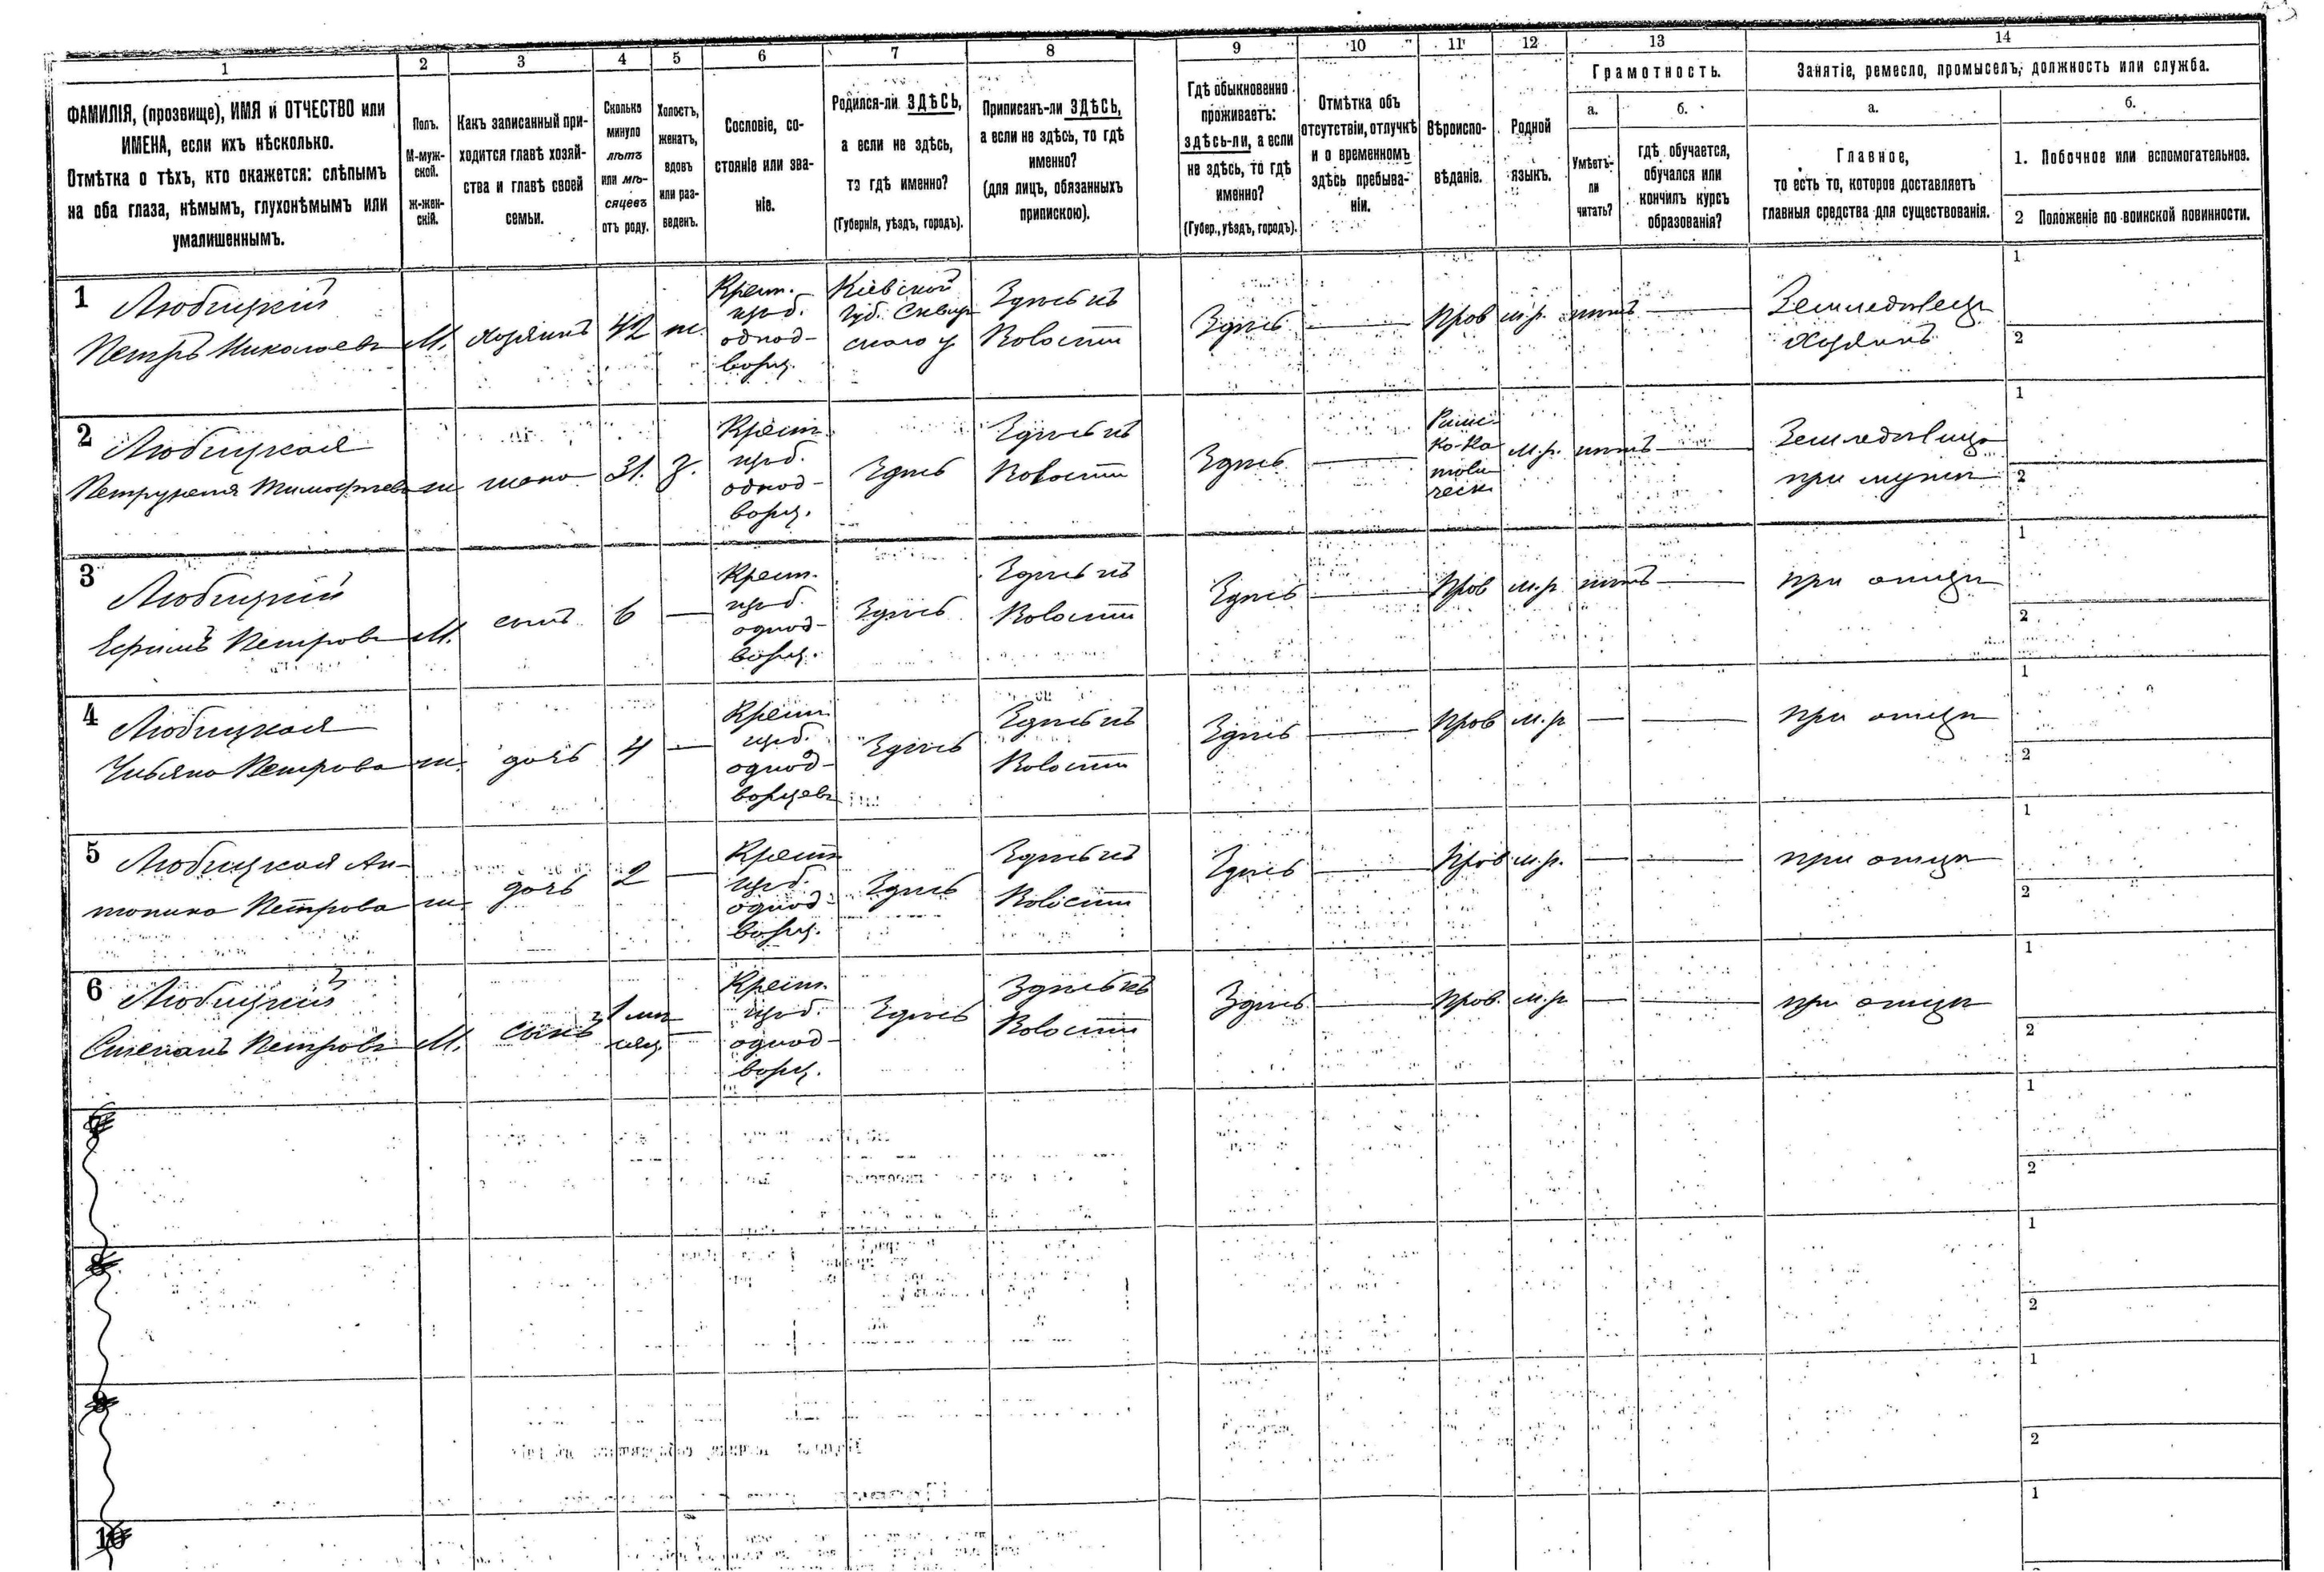 1 2 3 4 5 6 7 8 9 10 11 12 13 14
ФАМИЛІЯ, (прозвище), ИМЯ и ОТЧЕСТВО или
ИМЕНА, если ихъ нѣсколько.
Отмѣтка о тѣхъ, кто окажется: слѣпымъ
на оба глаза, нѣмымъ, глухонѣмымъ или
умалишеннымъ.
Полъ.
М-муж-
ской.
Ж-жен-
скій.
Какъ записанный при-
ходится главѣ хозяй-
ства и главѣ своей
семьи.
Сколько
минуло
лѣтъ
или мѣ-
сяцевъ
отъ роду.
Холостъ,
женатъ,
вдовъ
или раз-
веденъ.
Сословіе, со-
стояніе или зва-
ніе.
Родился-ли ЗДѢСЬ,
а если не здѣсь,
то гдѣ именно?
(Губернія, уѣздъ, городъ).
Приписанъ-ли ЗДѢСЬ,
а если не здѣсь, то гдѣ
именно?
(для лицъ, обязанныхъ
припискою).
Гдѣ обыкновенно
проживаетъ:
здѣсь-ли, а если
не здѣсь, то гдѣ
именно?
(Губер., уѣздъ, городъ).
Отмѣтка объ
отсутствіи, отлучкѣ
и о временномъ
здѣсь пребыва-
ніи.
Вѣроиспо-
вѣданіе.
Родной
языкъ.
Грамотность.
а.
Умѣетъ-
ли
читать?
б.
гдѣ обучается,
обучался или
кончилъ курсъ
образованія?
Занятіе, ремесло, промыселъ, должность или служба.
а.
Главное,
то есть то, которое доставляетъ
главныя средства для существованія.
б.
1. Побочное или вспомогательное.
2 Положеніе по воинской повинности.
1
Любицкій
Петръ Николаевъ
М.
хозяинъ
42
ж.
Крест.
однод-
ворц.
Кіевской
Губ. Сквир
скаго у
Здѣсь къ
Волости
Здѣсь
Пров
м.р.
нѣтъ
Земледѣлецъ
Хозяинъ
1
2
2
Любицкая
М.р.
31.
З.
Крест.
однод-
ворц.
Здѣсь
Здѣсь къ
Волости
Здѣсь
Римс-
ко-Ка
толи
ческ.
нѣтъ
при мужѣ
1
2
3
Любицкій
Ефимъ Петровъ
М.
сынъ
6
Крест.
однод-
ворц.
Здѣсь
Здѣсь къ
Волости
Здѣсь
Пров
м.р
нѣтъ
при отцѣ
1
2
4
Любицкая
Петрова
ж.
дочь
4
Крест.
однод-
ворцевъ
Здѣсь
Здѣсь къ
Волости
Здѣсь
Пров
м.р
при отцѣ
1
2
5
Любицкая Ан-
тонина Петрова
ж.
дочь
2
Крест.
однод-
ворц.
Здѣсь
Здѣсь къ
Волости
Здѣсь
Пров
м.р.
при отцѣ
1
2
6
Любицкій
Степанъ Петровъ
М.
сынъ
1 мѣ
сяц.
Крест.
однод-
ворц.
Здѣсь
Здѣсь къ
Волости
Здѣсь
Пров.
м.р
при отцѣ
1
2
7
1
2
8
1
2
9
1
2
10
1